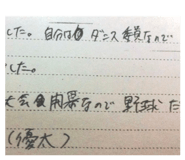 した。自分はダンス委員なので
した。
大会負用県なので野球だ
(優太)